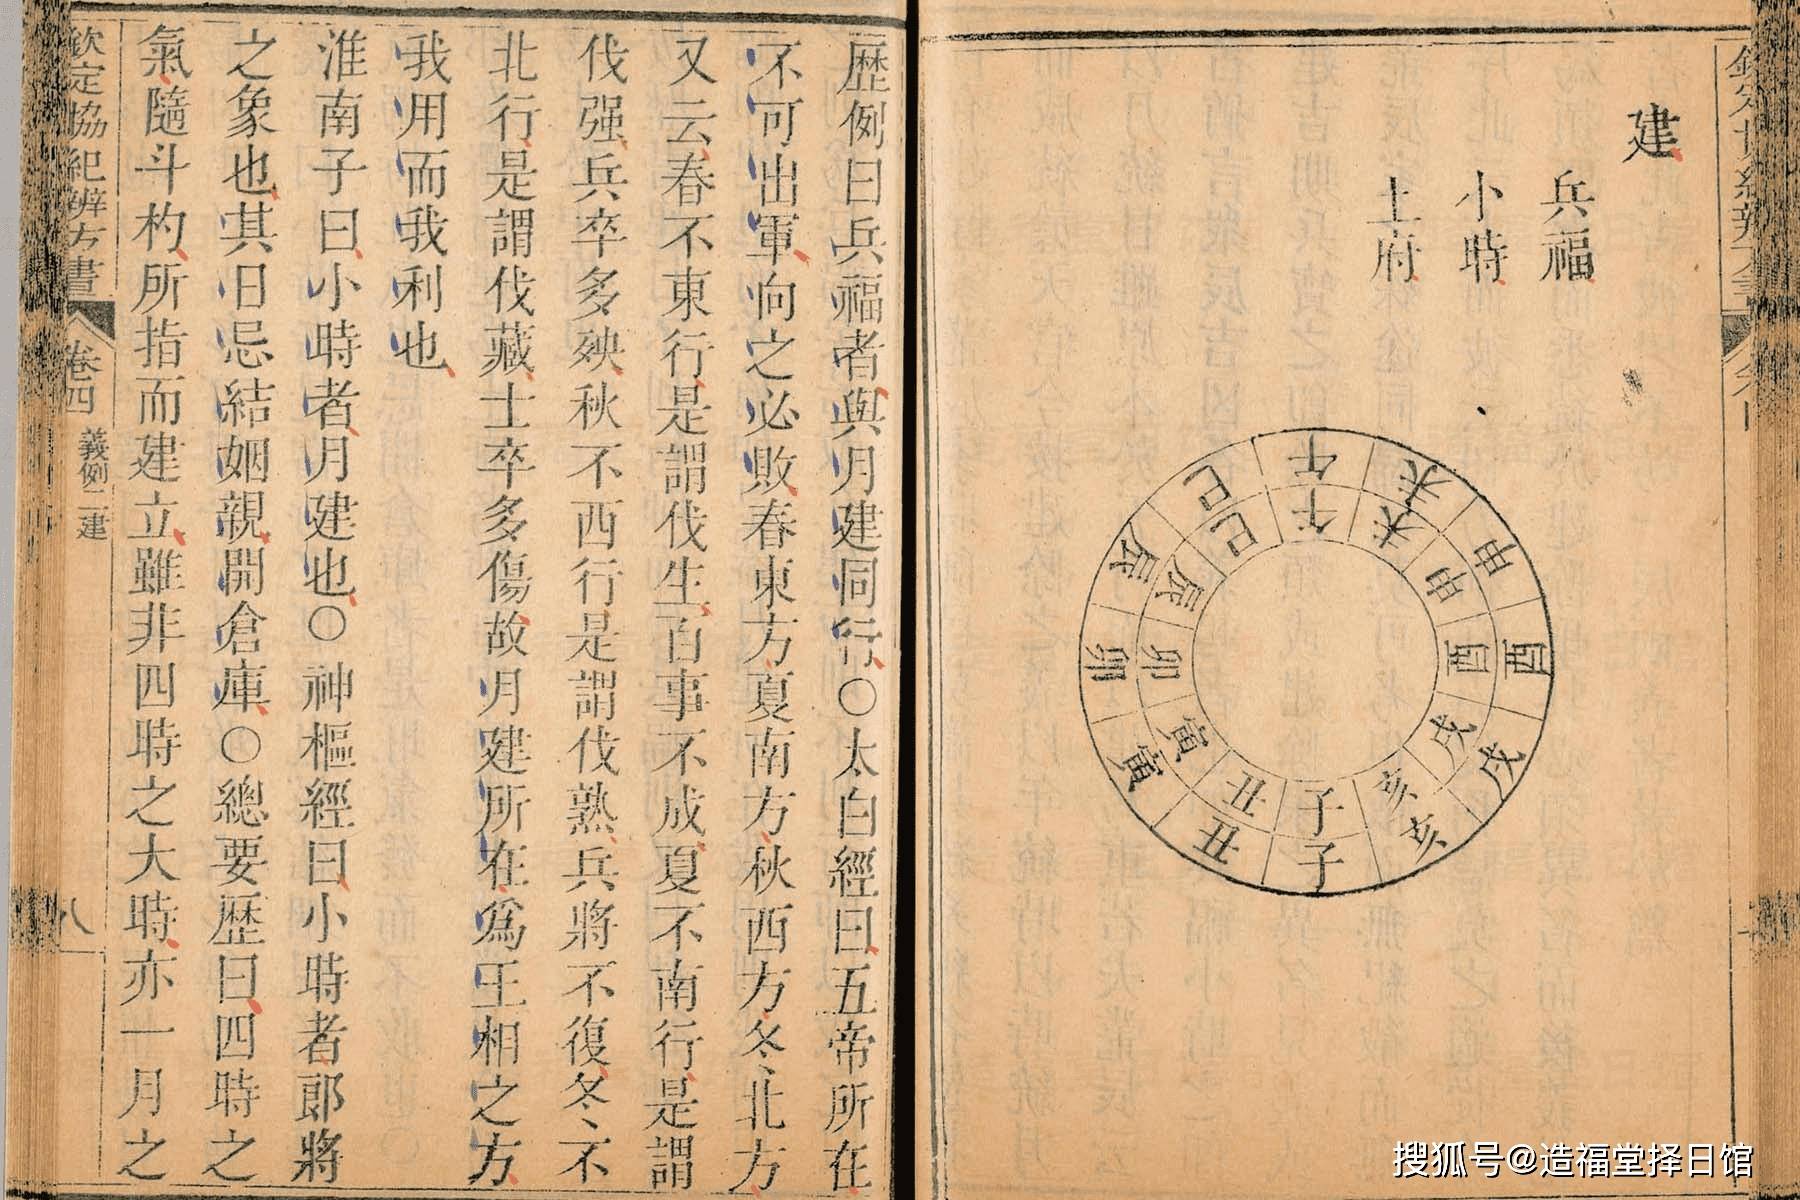 建
兵福
小時
土府
子丑寅卯辰巳午未申酉戌亥
子丑寅卯辰巳午未申酉戌亥
歷例曰兵福者與月建同行○太白經曰五帝所在
不可出軍向之必敗春東方夏南方秋西方冬北方
又云春不東行是謂伐生百事不成夏不南行是謂
伐强兵卒多殃秋不西行是謂伐熟兵將不復冬不
北行是謂伐藏士卒多傷故月建所在爲王相之方
我用而我利也
淮南子曰小時者月建也○神樞經曰小時者郎將
之象也其日忌結姻親開倉庫○總要歷曰四時之
氣隨斗杓所指而建立雖非四時之大時亦一月之
欽定協紀辨方書 卷四 義例二 建 八
搜狐号@造福堂择日馆